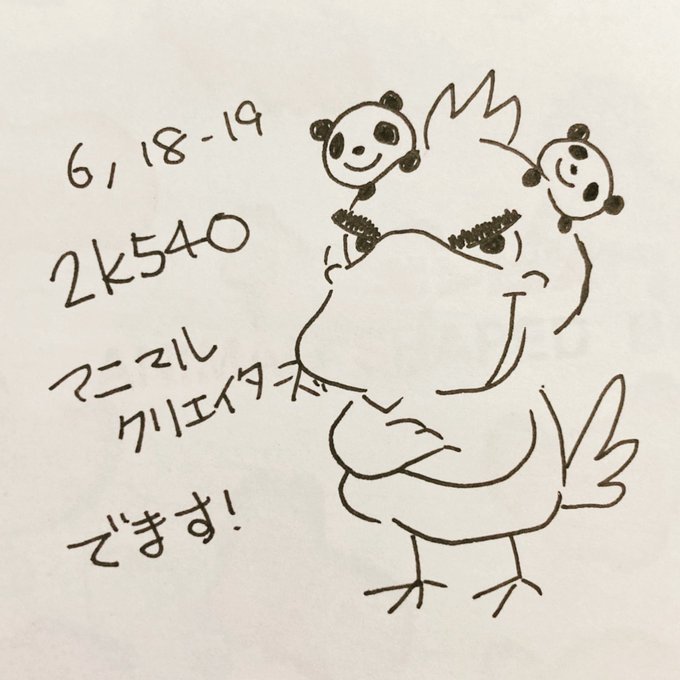 6,18-19
2k540
アニマル
クリエイターズ
でます!